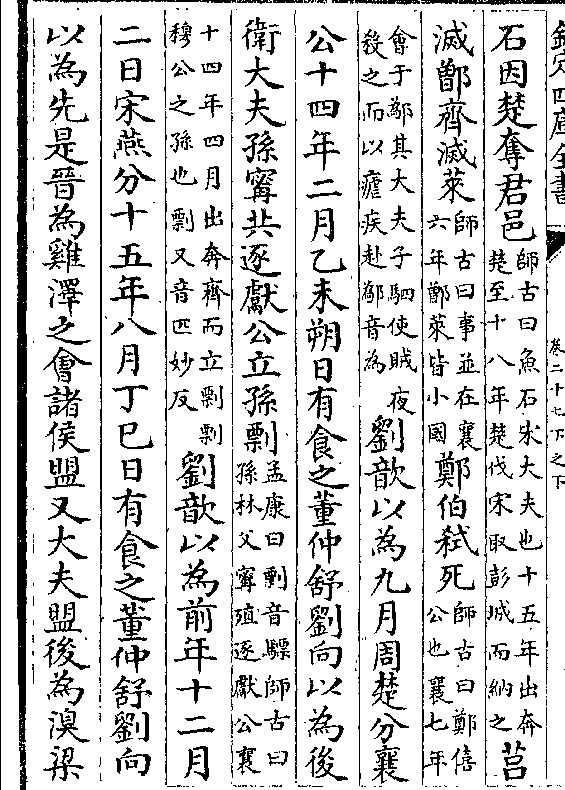 欽定四庫全書
卷二十七下之下
石因楚奪君邑師古曰魚石宋大夫也十五年出奔楚至十八年楚伐宋取彭城而納之莒
滅鄫齊滅萊師古曰事並在襄六年鄫萊皆小國鄭伯弑死師古曰鄭僖公也襄七年
會于鄬其大夫子駟使賊夜殺之而以瘧疾赴鄬音為劉歆以為九月周楚分襄
公十四年二月乙未朔日有食之董仲舒劉向以為後
衛大夫孫甯共逐獻公立孫剽孟康曰剽音驃師古曰孫林父甯殖逐獻公襄
十四年四月出奔齊而立剽剽穆公之孫也剽又音匹妙反劉歆以為前年十二月
二日宋燕分十五年八月丁巳日有食之董仲舒劉向
以為先是晉為雞澤之會諸侯盟又大夫盟後為溴梁